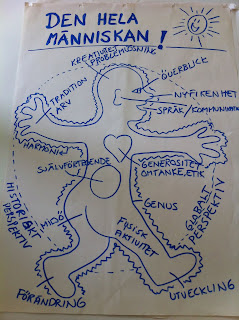 DEN HELA
MÄNNISKAN!
KREATIVITET
PROBLEMLÖSNING
ÖVERBLICK
TRADITION
ARV
NYFIKENHET
SPRÅK/KOMMUNIKATION
HARMONI
SJÄLVFÖRTROENDE
GENEROSITET
OMTANKE, ETIK
HISTORISKT
PERSPEKTIV
GLOBALT
PERSPEKTIV
GENUS
MILJÖ
FYSISK
AKTIVITET
FÖRÄNDRING
UTVECKLING